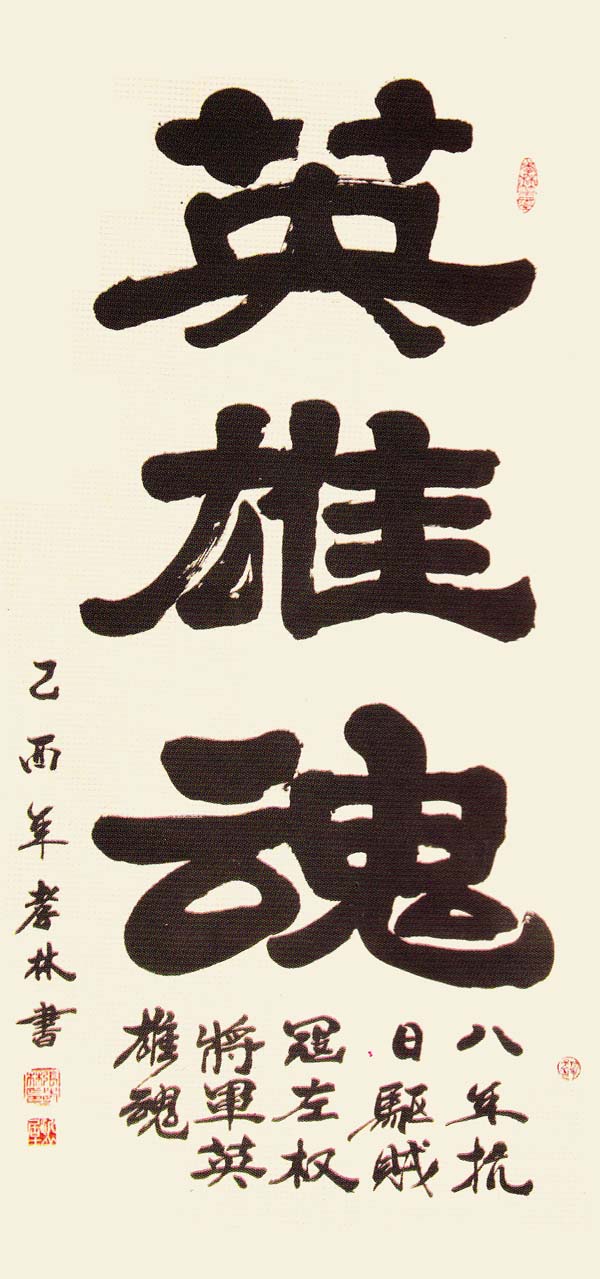 英雄魂
八年抗
日驅賊
寇左权
將軍英
雄魂
乙酉年孝林書